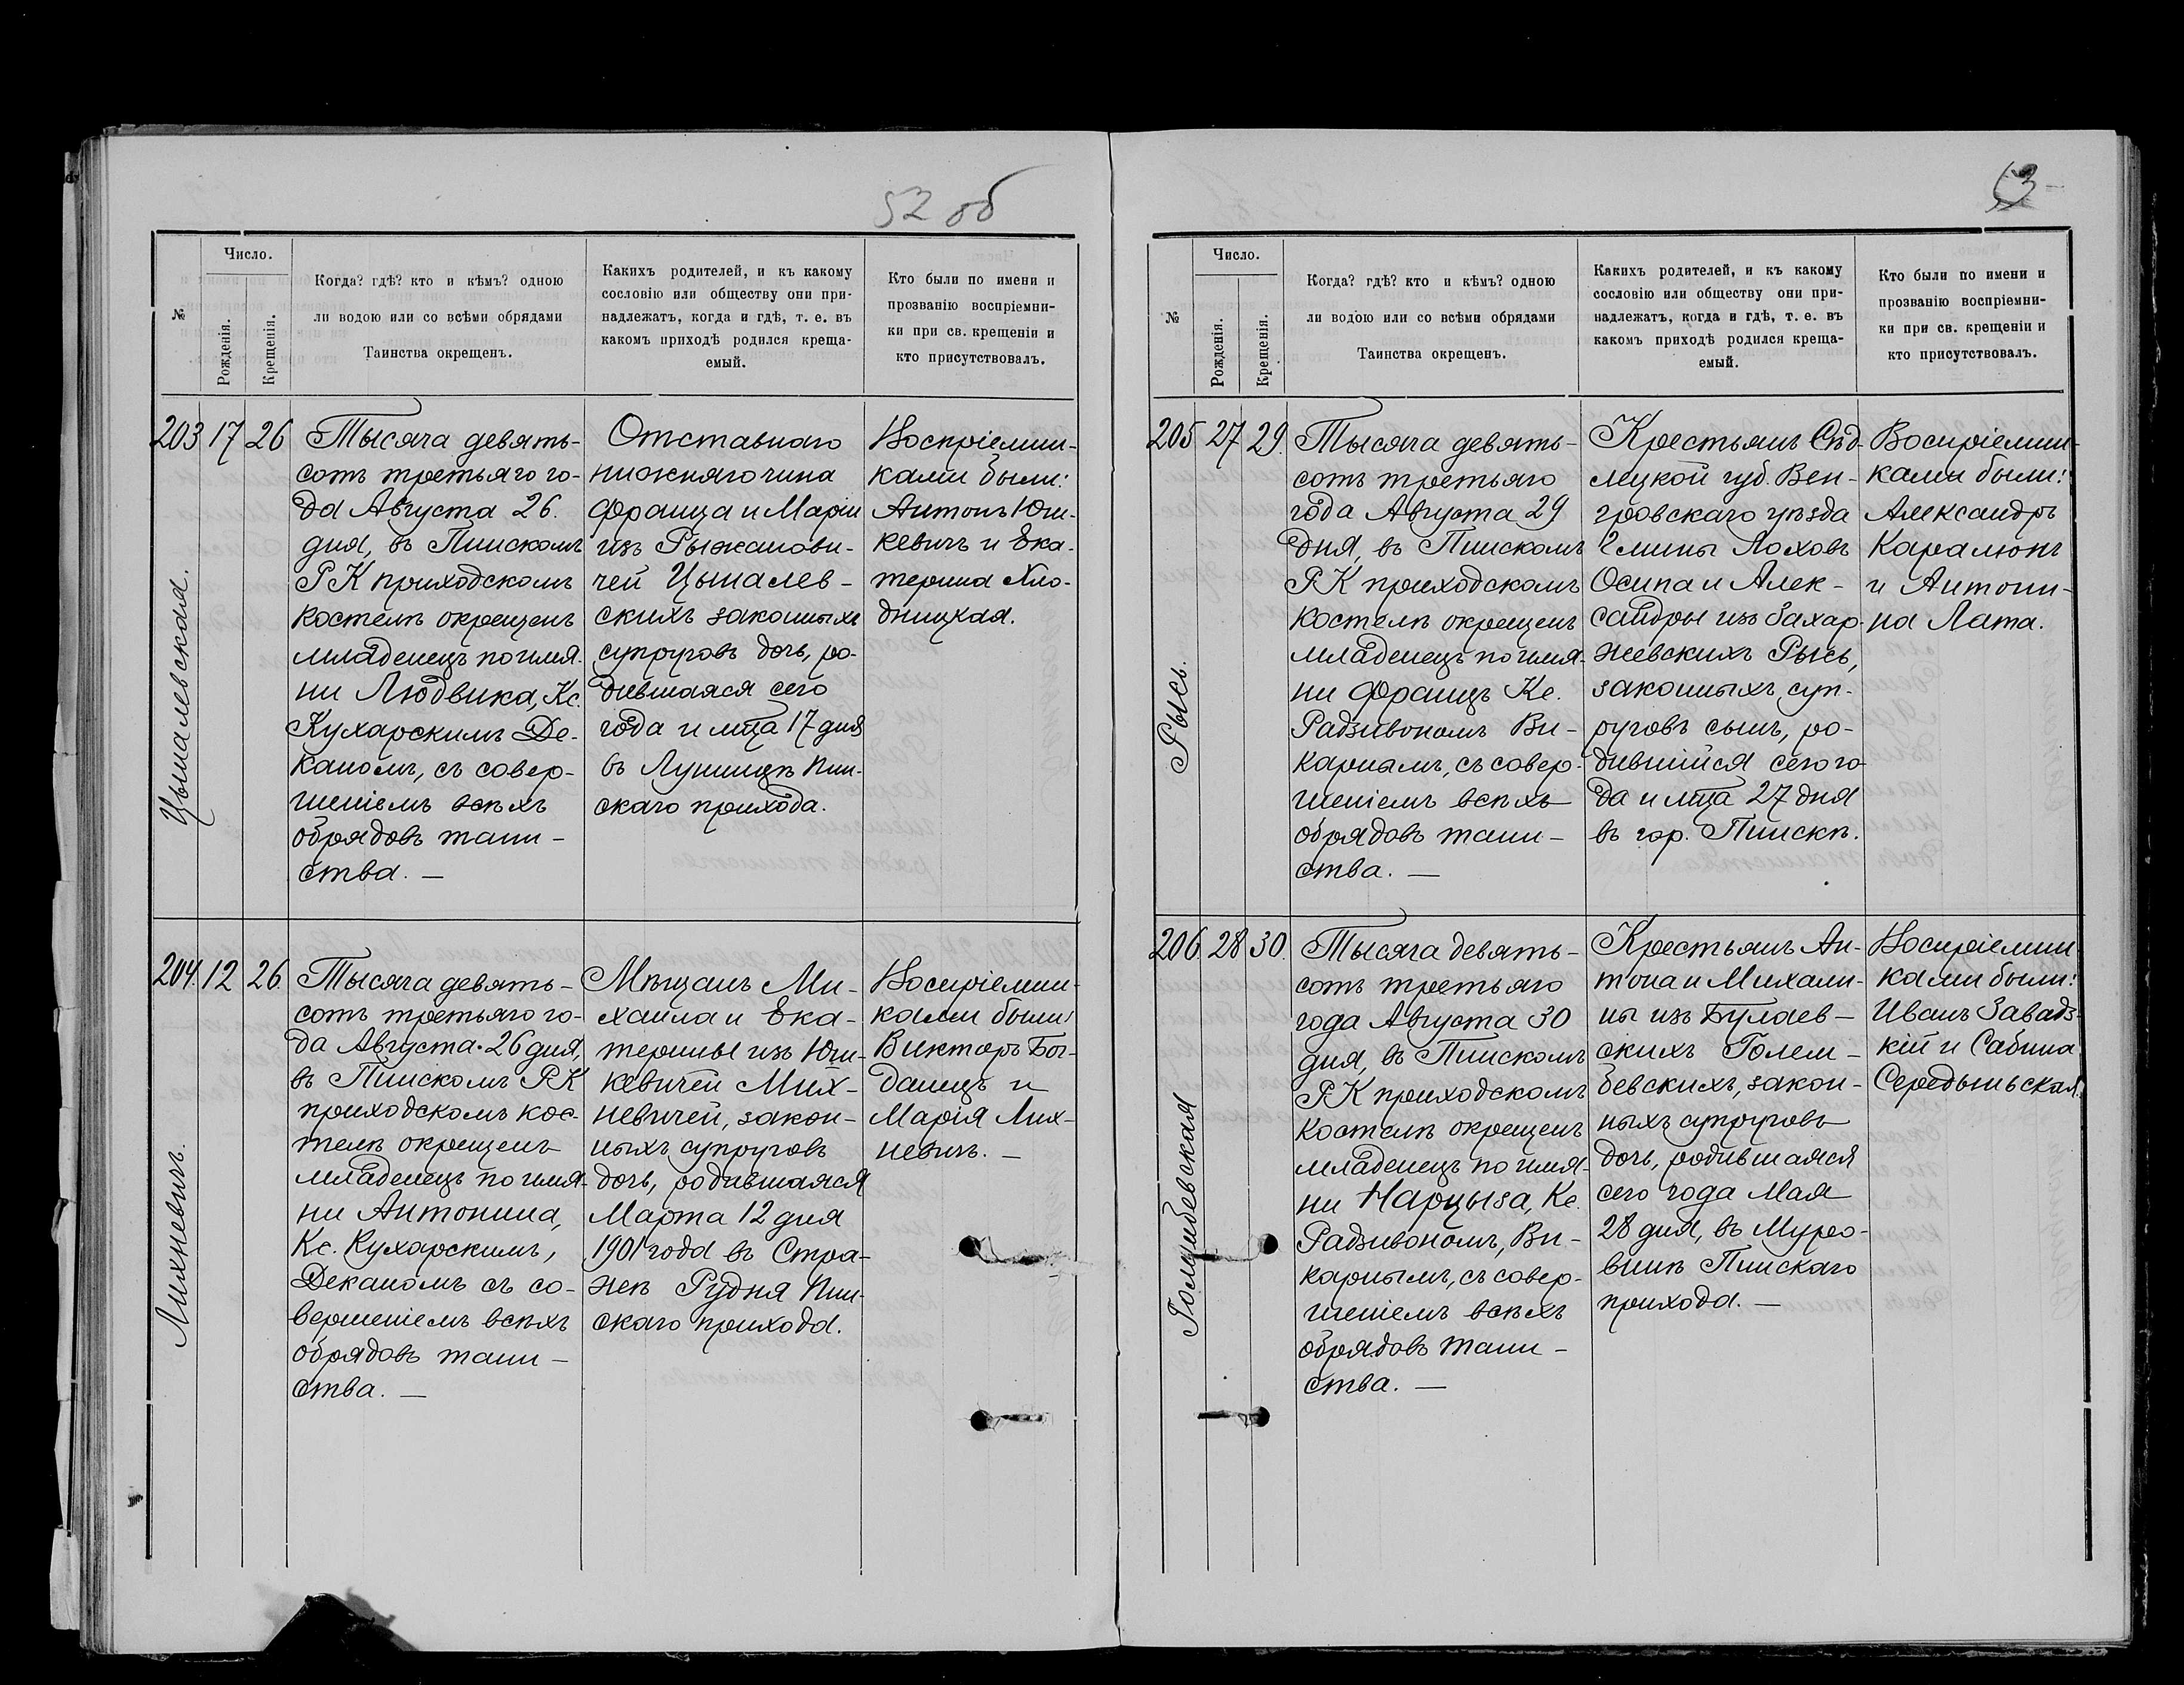 52 об
№
Число.
Рожденія.
Крещенія.
Когда? гдѣ? кто и кѣмъ? одною
ли водою или со всѣми обрядами
Таинства окрещенъ.
Какихъ родителей, и къ какому
сословію или обществу они при-
надлежатъ, когда и гдѣ, т. е. въ
какомъ приходѣ родился креща-
емый.
Кто были по имени и
прозванію воспріемни-
ки при св. крещеніи и
кто присутствовалъ.
203 17 26
Цымалевская.
Тысяча девять-
сотъ третьяго го-
да Августа 26.
дня, въ Пинскомъ
РК приходскомъ
костелѣ окрещенъ
младенецъ по имя-
ни Людвика, Кс.
Кухарскимъ Де-
каномъ, съ совер-
шеніемъ всѣхъ
обрядовъ таин-
ства. —
Отставнаго
нижняго чина
Франца и Маріи
изъ Рыжанови-
чей Цымалев-
скихъ законныхъ
супруговъ дочь, ро-
дившаяся сего
года и мца 17 дня
въ Лунинцѣ Пин-
скаго прихода.
Воспріемни-
ками были:
Антонъ Юш-
кевичъ и Ека-
терина Хло-
дницкая.
204. 12 26.
Михневичъ.
Тысяча девять-
сотъ третьяго го-
да Августа 26 дня,
въ Пинскомъ РК
приходскомъ кос-
телѣ окрещенъ
младенецъ по имя-
ни Антонина,
Кс. Кухарскимъ,
Деканомъ съ со-
вершеніемъ всѣхъ
обрядовъ таин-
ства. —
Мѣщанъ Ми-
хаила и Ека-
терины изъ Юш-
кевичей Мих-
невичей, закон-
ныхъ супруговъ
дочь, родившаяся
Марта 12 дня
1901 года въ Стра-
жѣ Рудня Пин-
скаго прихода.
Воспріемни-
ками были:
Викторъ Бог-
данецъ и
Марія Мих-
невичъ. —
53
№
Число.
Рожденія.
Крещенія.
Когда? гдѣ? кто и кѣмъ? одною
ли водою или со всѣми обрядами
Таинства окрещенъ.
Какихъ родителей, и къ какому
сословію или обществу они при-
надлежатъ, когда и гдѣ, т. е. въ
какомъ приходѣ родился креща-
емый.
Кто были по имени и
прозванію воспріемни-
ки при св. крещеніи и
кто присутствовалъ.
205 27 29.
Рысь.
Тысяча девять-
сотъ третьяго
года Августа 29
дня, въ Пинскомъ
РК приходскомъ
костелѣ окрещенъ
младенецъ по имя-
ни Францъ Кс.
Радзивономъ Ви-
карнымъ, съ совер-
шеніемъ всѣхъ
обрядовъ таин-
ства. —
Крестьянъ Сѣд-
лецкой губ. Вен-
гровскаго уѣзда
Гмины Лоховъ
Осипа и Алек-
сандры изъ Захар-
жевскихъ Рысь,
законныхъ суп-
руговъ сынъ, ро-
дившійся сего го-
да и мца 27 дня
въ гор. Пинскѣ.
Воспріемни-
ками были:
Александръ
Каралюнъ
и Антони-
на Лата.
206 28 30.
Голембевская
Тысяча девять-
сотъ третьяго
года Августа 30
дня, въ Пинскомъ
РК приходскомъ
костелѣ окрещенъ
младенецъ по имя-
ни Нарцыза, Кс.
Радзивономъ, Ви-
карнымъ, съ совер-
шеніемъ всѣхъ
обрядовъ таин-
ства. —
Крестьянъ Ан-
тона и Михали-
ны изъ Булаев-
скихъ Голем-
бевскихъ, закон-
ныхъ супруговъ
дочь, родившаяся
сего года Мая
28 дня, въ
Пинскаго
прихода. —
Воспріемни-
ками были:
Иванъ Завадз-
кій и Сабина
Середыньская.